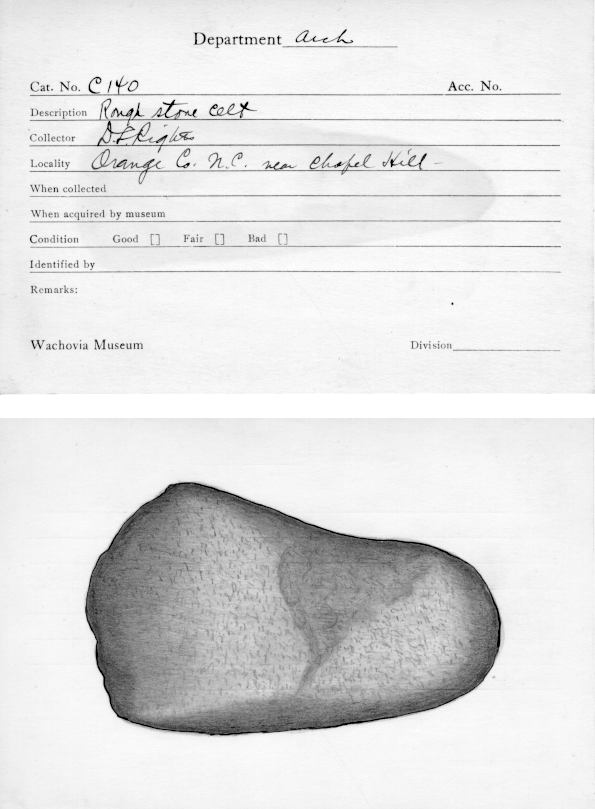 Department Arch
Cat. No. C 140 Acc. No.
Description Rough stone celt
Collector D L Rights
Locality Orange Co. N.C. near Chapel Hill -
When collected
When acquired by museum
Condition Good [] Fair [] Bad []
Identified by
Remarks:
Wachovia Museum Division